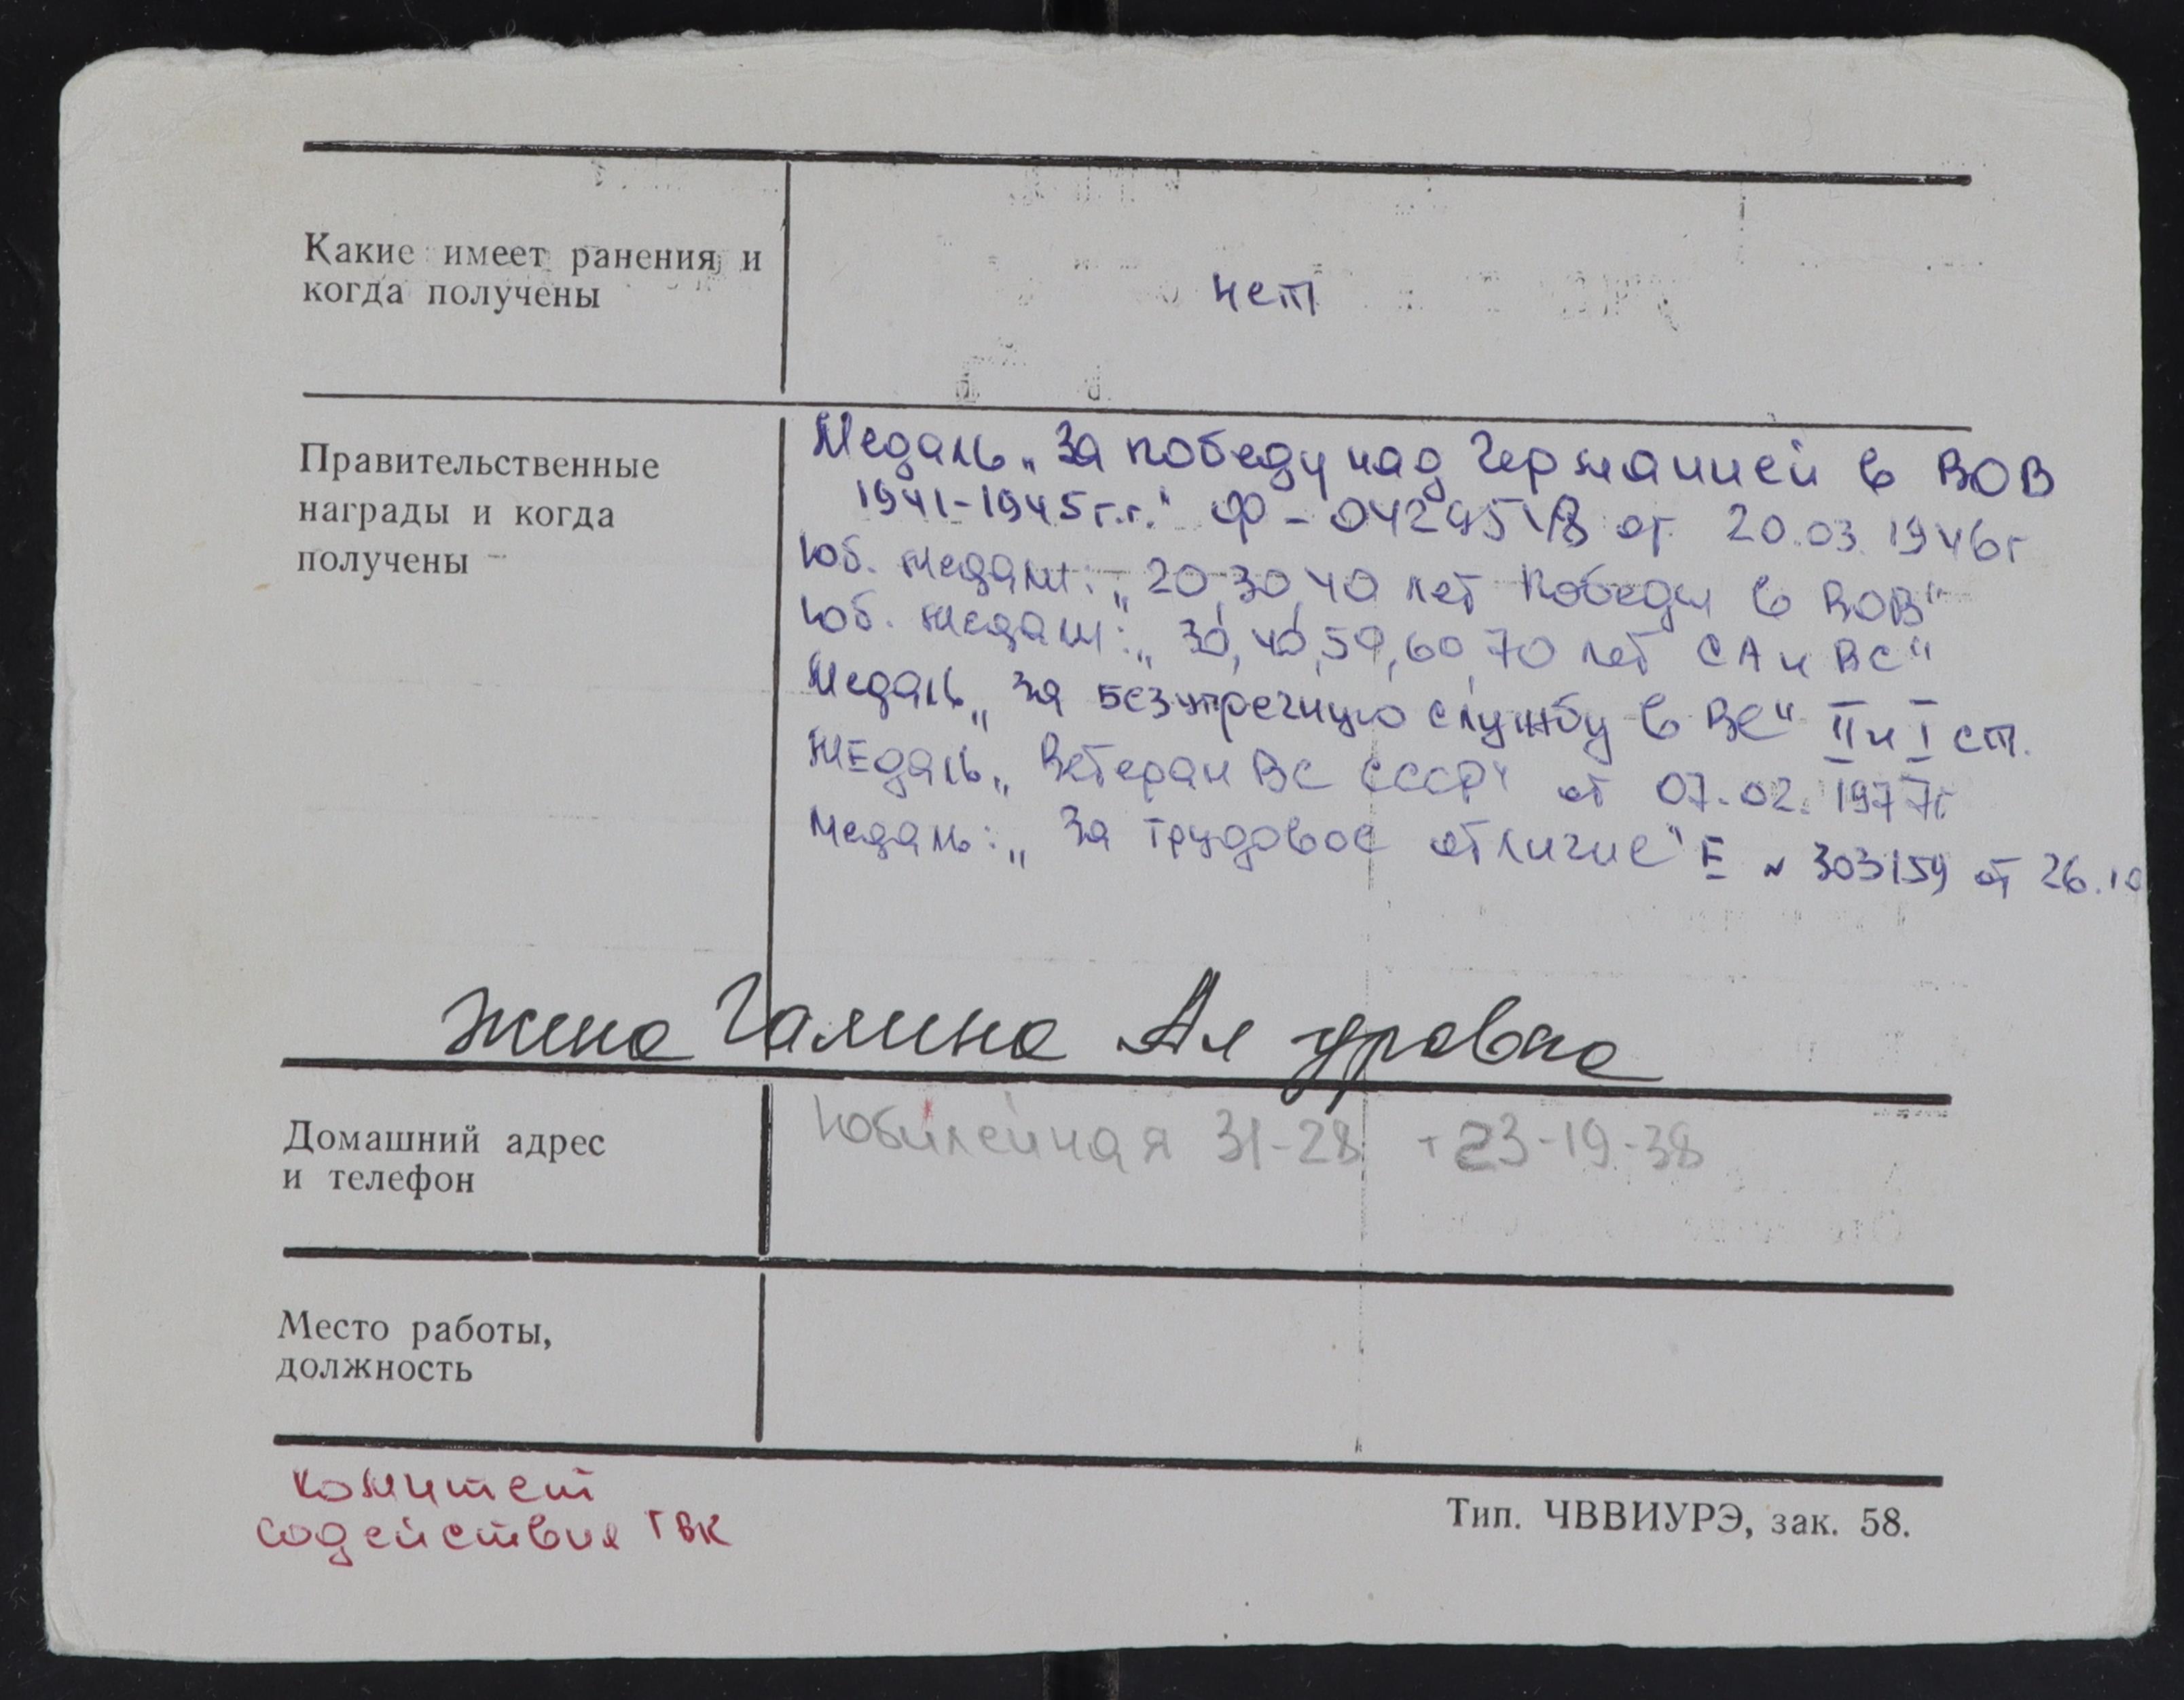 Какие имеет ранения и
когда получены
нет
Правительственные
награды и когда
получены
Медаль „За победу над Германией в ВОВ
1941-1945г.г." от 20.03.1946г
Юб. медали: „20,30,40 лет Победы в ВОВ"
Юб. медали: „30,40,50,60,70 лет СА и ВС"
Медаль „За безупречную службу в ВС" II и I ст.
Медаль „Ветеран ВС СССР" от 07.02.1977г
Медаль: „За трудовое отличие" Е № 303159 от 26.10
Жена Галина
Домашний адрес
и телефон
Юбилейная 31-28 т 23-19-38
Место работы,
должность
комитет
содействия ГВК
Тип. ЧВВИУРЭ, зак. 58.